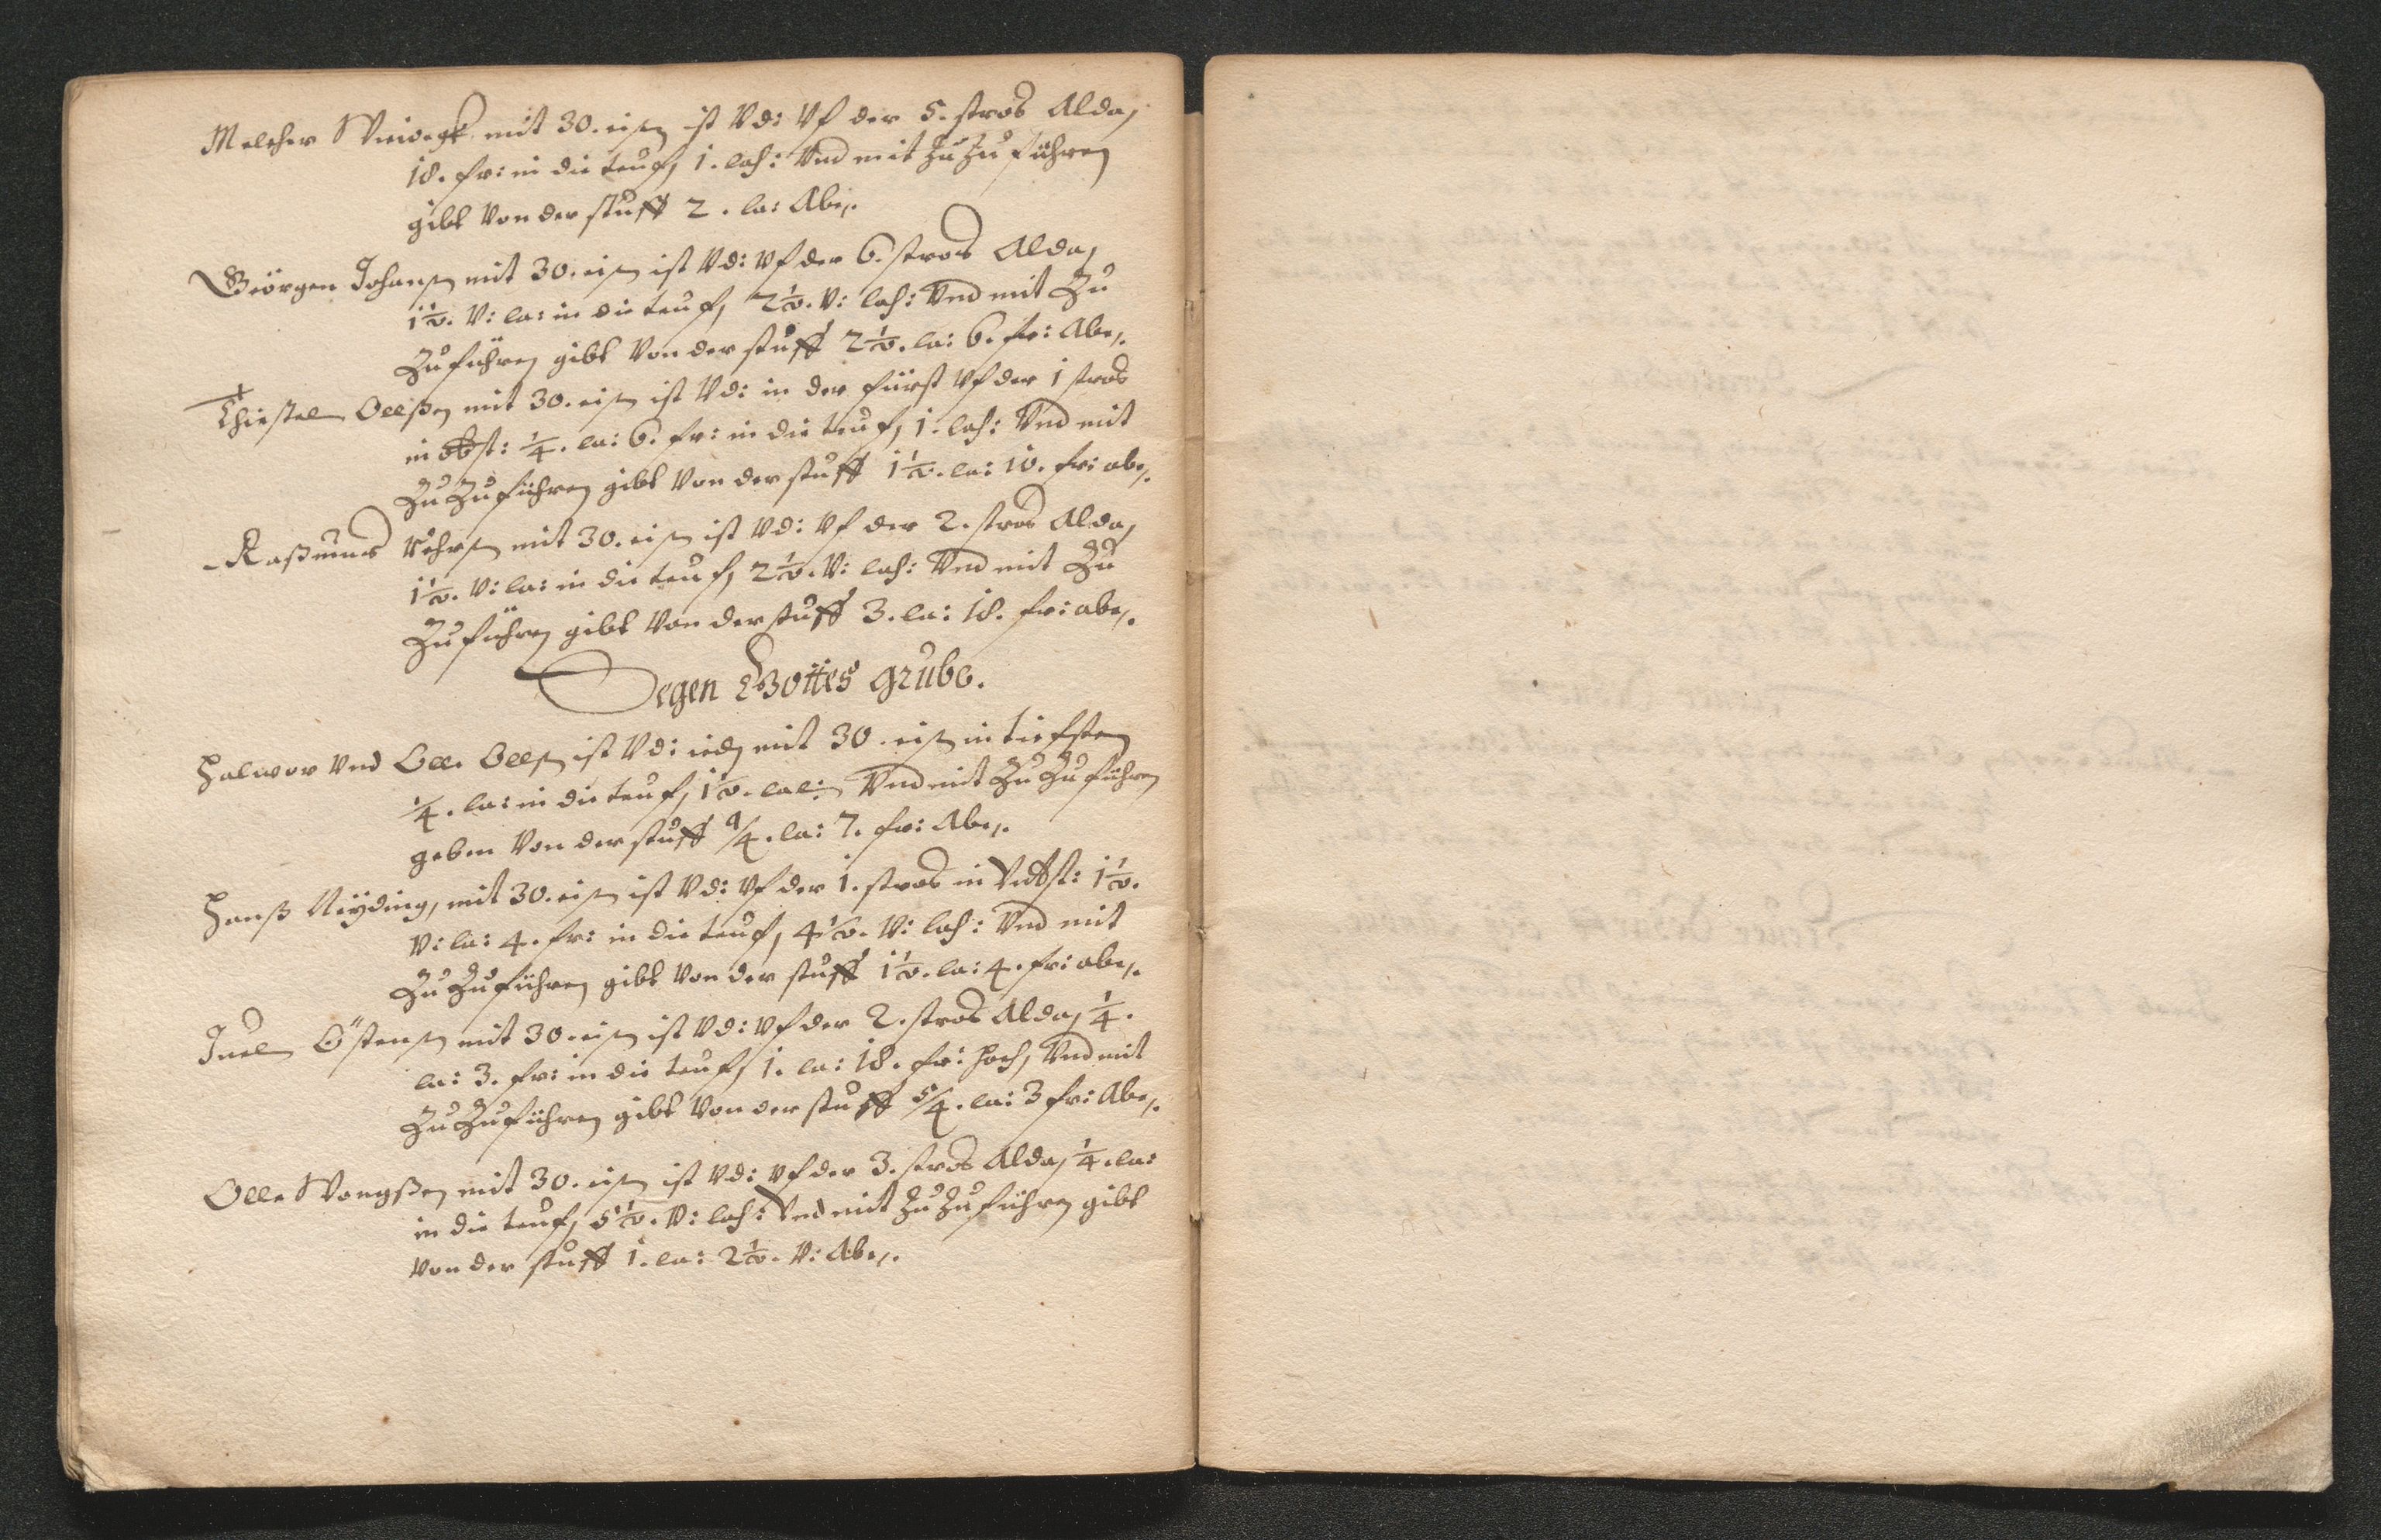 Melcher mit 30. eisen ist Vd: Vf der 5. stros Alda,
18. fr: in die teuf, 1. lah: Vnd mit Zu Zu führen
gibt Von der stuff 2. la: Abe,.
Geörgen Johansen mit 30. eisen ist Vd: Vf der 6. stros Alda,
1½. V: la: in die teuf, 2½. V: lah: Vnd mit Zu
Zu führen gibt Von der stuff 2½. la: 6. fr: Abe,.
Chistel Ollßen mit 30. eisen ist Vd: in der fürst Vf der 1 stros
in ¼. la: 6. fr: in die teuf, 1. lah: Vnd mit
Zu Zu führen gibt Von der stuff 1½. la: 10. fr: abe,.
Raßmus mit 30. eisen ist Vd: Vf der 2. stros Alda,
1½. V: la: in die teuf, 2½. V: lah: Vnd mit Zu
Zu führen gibt Von der stuff 3. la: 18. fr: abe,.
Segen Gottes grube.
Halwor Vnd Olle Ollsen ist Vd: ieder mit 30. eisen in tiefsten
¼. la: in die teuf, 1½. Vnd mit Zu Zu führen
geben Von der stuff 9/4. la: 7. fr: Abe,.
Hanß Neÿding, mit 30. eisen ist Vd: Vf der 1. stros in 1½.
V: la: 4. fr: in die teuf, 4½. V: lah: Vnd mit
Zu Zu führen gibt Von der stuff 1½. la: 4. fr: abe,.
Juel Östensen mit 30. eisen ist Vd: Vf der 2. stros Alda, ¼.
la: 3. fr: in die teuf, 1. la: 18. fr: hoch, Vnd mit
Zu Zu führen gibt Von der stuff 5/4. la: 3 fr: Abe,.
Olle mit 30. eisen ist Vd: Vf der 3. stros Alda, ¼. la:
in die teuf, 5½. V: lah: Vnd mit Zu Zu führen gibt
Von der stuff 1. la: 2½. V: Abe,.